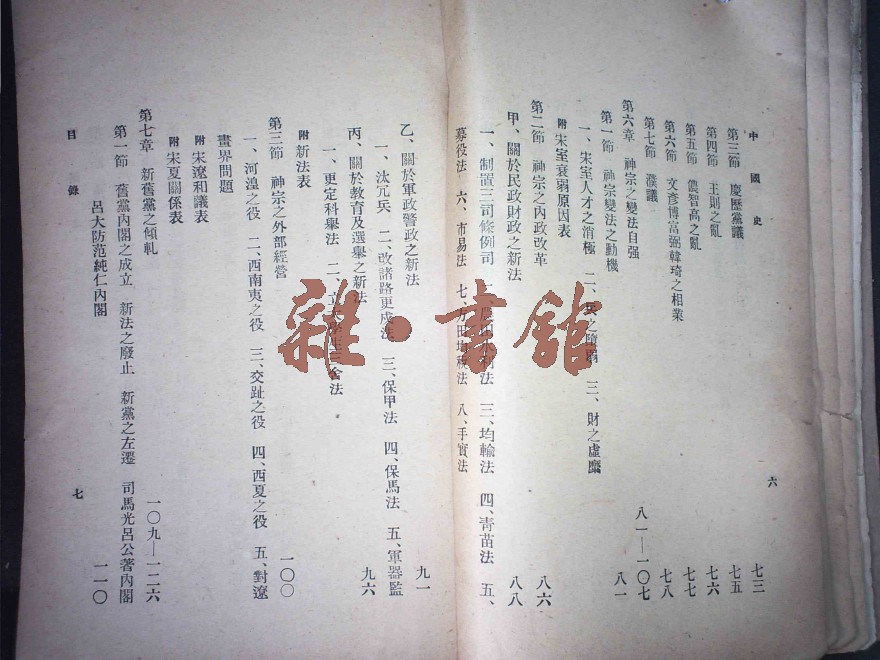 中國史
六
第三節　慶歷黨議
七三
第四節　王則之亂
七五
第五節　儂智高之亂
七六
第六節　文彥博富弼韓琦之相業
七七
第七節　濮議
七八
第六章　神宗之變法自强
八一—一〇七
第一節　神宗變法之動機
八一
一、宋室人才之消極　二、兵之墮弱　三、財之虛糜
附　宋室衰弱原因表
第二節　神宗之內政改革
八六
甲、關於民政財政之新法
八八
一、制置三司條例司　法　三、均輸法　四、青苗法　五、
募役法　六、市易法　七、方田均稅法　八、手實法
乙、關於軍政警政之新法
九一
一、汰冗兵　二、改諸路更戍法　三、保甲法　四、保馬法　五、軍器監
丙、關於教育及選舉之新法
九六
一、更定科舉法　二、立太學生三舍法
附　新法表
第三節　神宗之外部經營
一〇〇
一、河湟之役　二、西南夷之役　三、交趾之役　四、西夏之役　五、對遼
畫界問題
附　宋遼和議表
附　宋夏關係表
第七章　新舊黨之傾軋
一〇九—一二六
第一節　舊黨內閣之成立　新法之廢止　新黨之左遷　司馬光呂公著內閣
呂大防范純仁內閣
一一〇
目錄
七
雜·書館